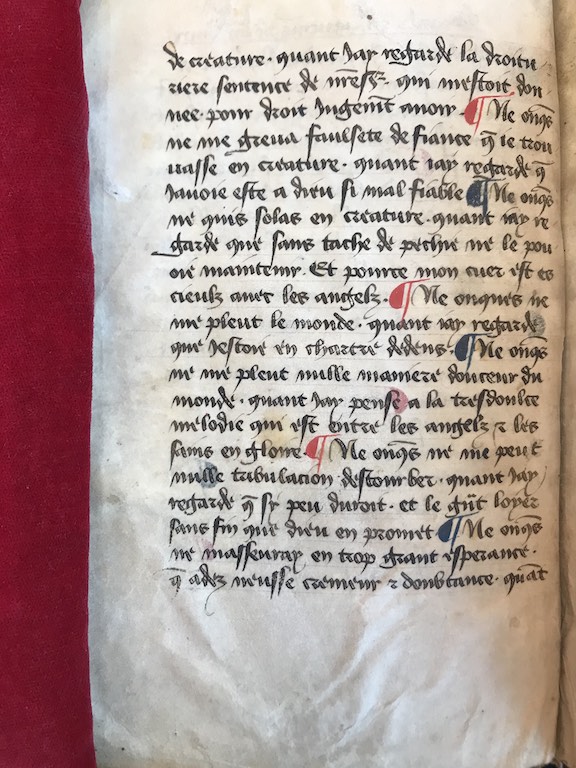 de creature · quant jay regarde la droitu
riere sentence de nr̄e sgr̄ · qui mestoit don
nee pour droit jugem̄t avoir · ¶ Ne onq̄s
ne me greva faulsete de fiance q̄ ie trou
vasse en creature · quant iay regarde q̄
javoie este a dieu si mal fiable ¶ Ne onq̄s
ne quis solas en creature · quant iay re
garde que sans tache de pechie ne le pou
oie maintenir · Et pource mon cuer est es
cieulz avec les angelz · ¶ Ne onques ne
me pleut le monde · quant iay regarde
que jestoie en chartre dedens · ¶ Ne onq̄s
ne me pleut nulle maniere douceur du
monde · quant jay pense a la tresdoulce
melodie qui est entre les angelz ⁊ les
sains en gloire · ¶ Ne onq̄s ne me peut
nulle tribulacion destourber · quant jay
regarde q̄ sy peu duroit · et le g̃nt loyer
sans fin que dieu en promet · ¶ Ne onq̄s
ne masseuray en trop grant esperance ·
q̄ adez neusse cremeur ⁊ doubtance · quāt